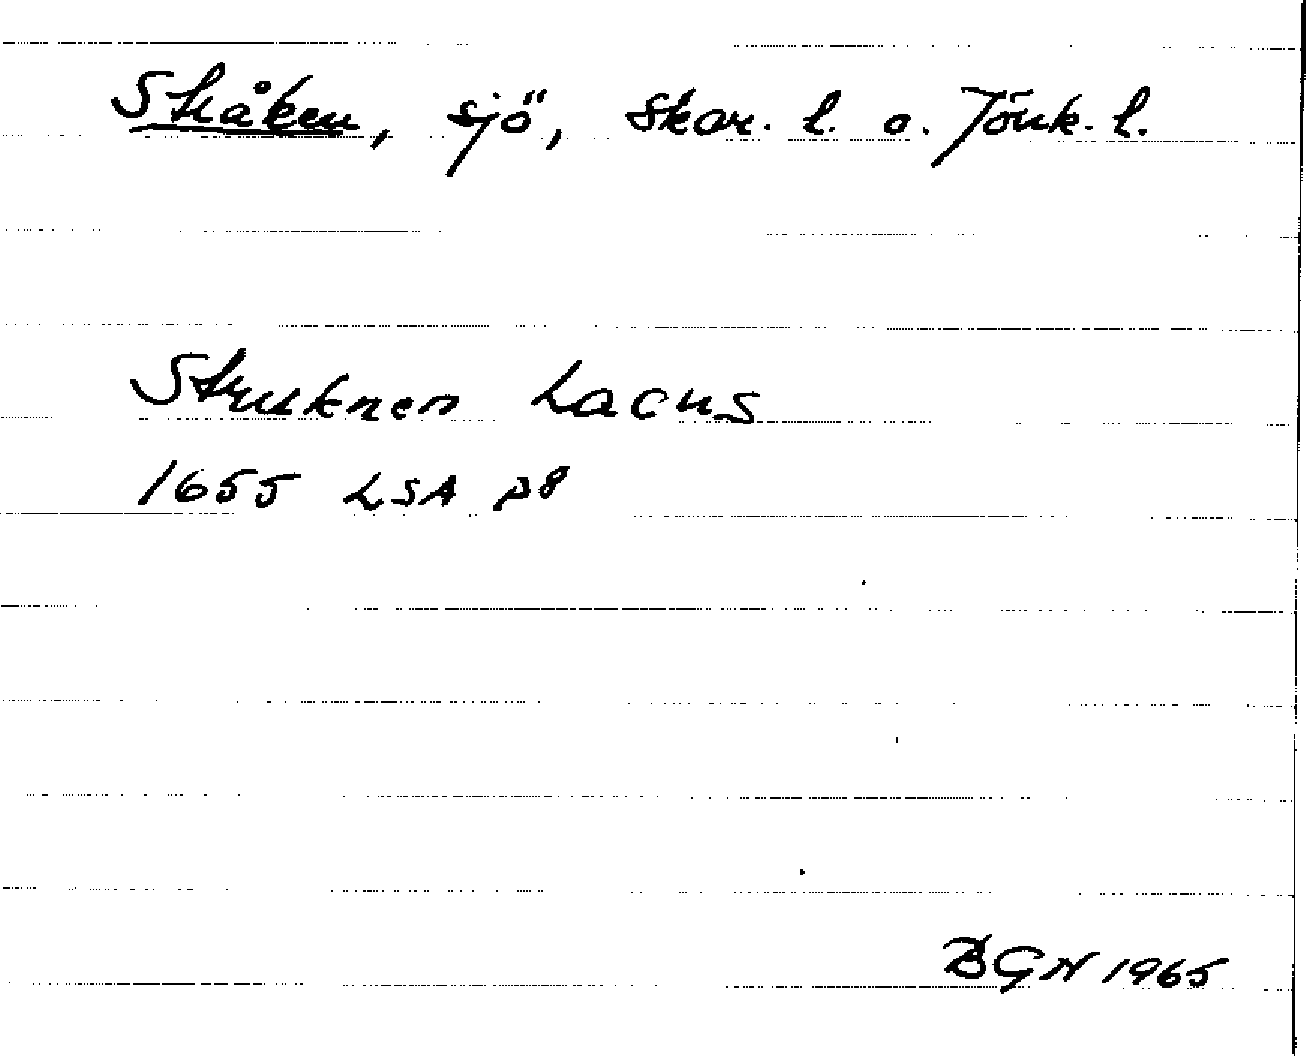 Stråken, sjö, Skar. l. o. Jönk. l.
Struknen Lacus
1655 LSA p8
BGN 1965